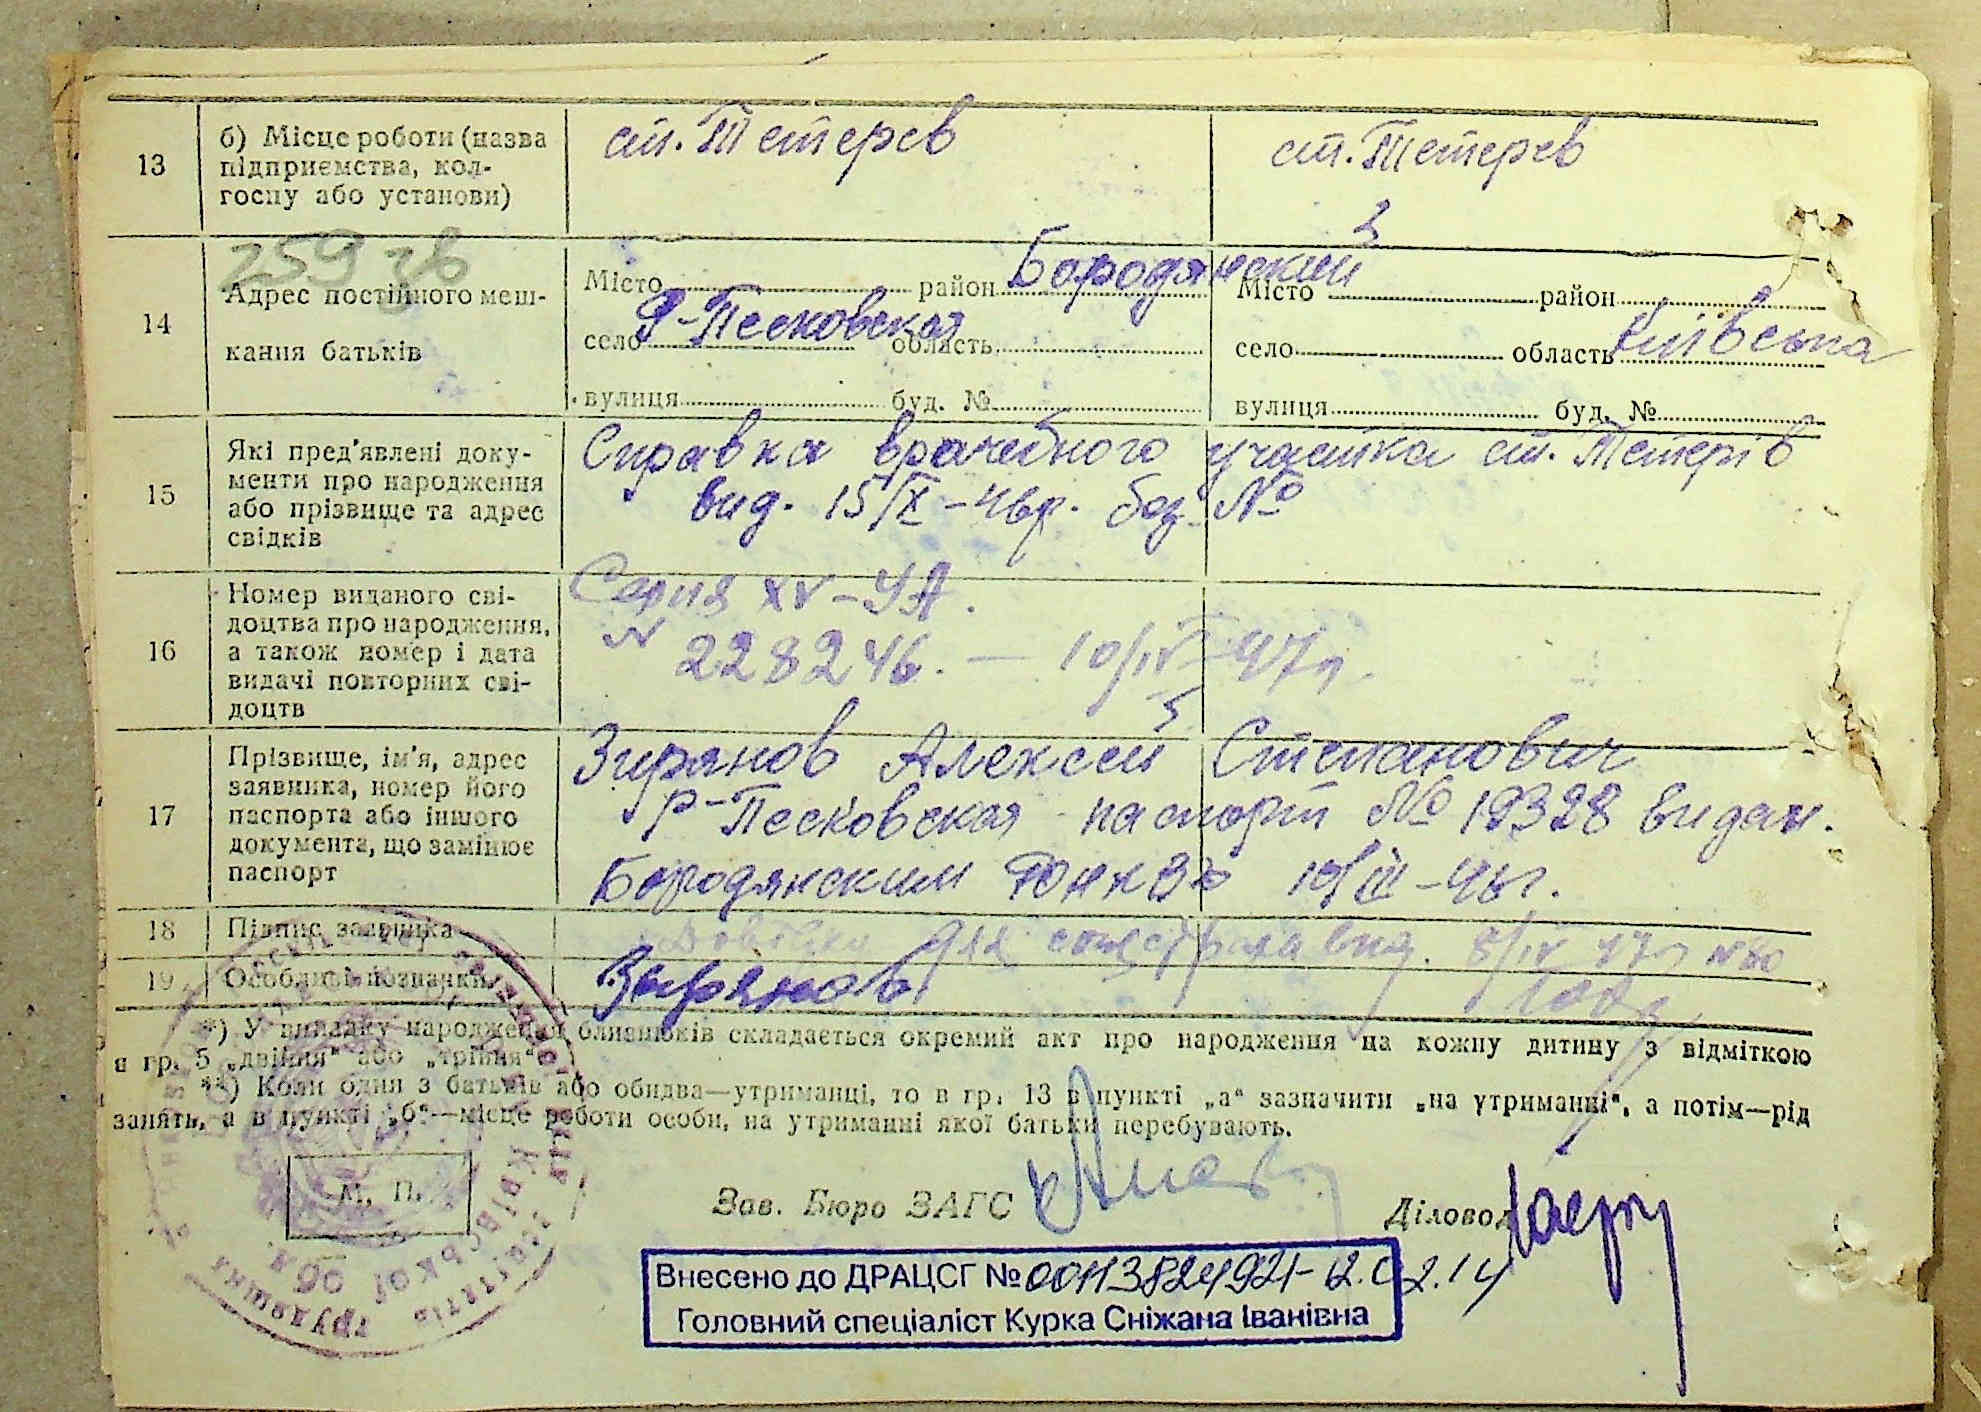 13 б) Місце роботи (назва підприємства, кол-госпу або установи)
ст. Тетерев
ст. Тетерев
259 зв
14 Адрес постійного меш-
кання батьків
Місто район Бородянский
село Р-Песковская область
вулиця буд. №
Місто район
село область Київська
вулиця буд. №
15 Які пред'явлені доку-
менти про народження
або прізвище та адрес
свідків
Справка врачебного участка ст. Тетерів
вид. 15/X-46р. без №
16 Номер виданого сві-
доцтва про народження,
а також номер і дата
видачі повторних сві-
доцтв
Серия XV-УА.
№ 228246. — 10/IV-47р.
17 Прізвище, ім'я, адрес
заявника, номер його
паспорта або іншого
документа, що замінює
паспорт
Зирянов Алексей Степанович
Р-Песковская паспорт № 19328 видан.
Бородянским 10/III-46г.
18 Підпис заявника
для вид. 8/IV 47р №80
19 Особливі позначки
Зырянов
*) У випадку народження близнюків складається окремий акт про народження на кожну дитину з відміткою
в гр. 5 „двійня“ або „трійня“.
**) Коли один з батьків або обидва—утриманці, то в гр. 13 в пункті „а“ зазначити „на утриманні“, а потім—рід
занять, а в пункті „б“—місце роботи особи, на утриманні якої батьки перебувають.
М. П.
Зав. Бюро ЗАГС
Діловод
Внесено до ДРАЦСГ № 00113824921-12.02.14
Головний спеціаліст Курка Сніжана Іванівна